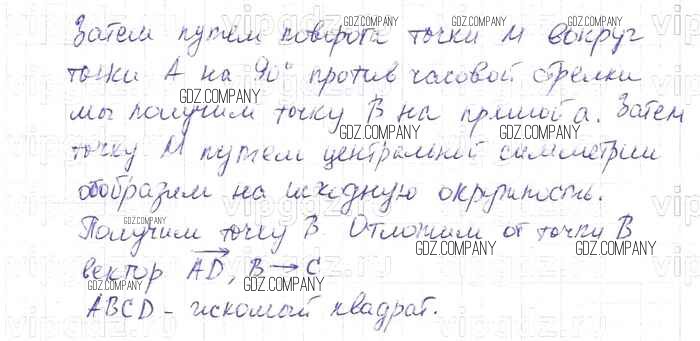 Затем путем поворота точки M вокруг
точки A на 90° против часовой стрелки
мы получим точку B на прямой a. Затем
точку M путем центральной симметрии
отобразим на исходную окружность.
Получим точку B. Отложим от точки B
вектор AD, B → C.
ABCD - искомый квадрат.
GDZ.COMPANY
GDZ.COMPANY
GDZ.COMPANY
GDZ.COMPANY
GDZ.COMPANY
GDZ.COMPANY
GDZ.COMPANY
GDZ.COMPANY
GDZ.COMPANY
GDZ.COMPANY
GDZ.COMPANY
GDZ.COMPANY
GDZ.COMPANY